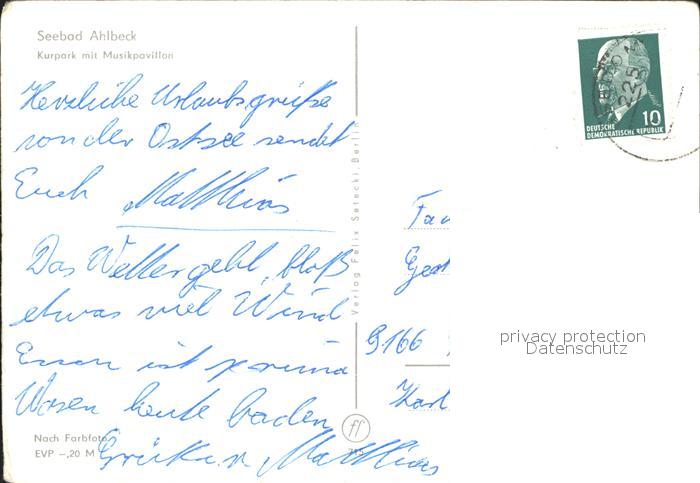 Seebad Ahlbeck
Kurpark mit Musikpavillon
Herzliche Urlaubsgrüße
von der Ostsee sendet
Euch Matthias
Das Wetter geht, bloß
etwas viel Wind
Essen ist prima
Waren heute baden
Nach Farbfoto
EVP –,20 M
Matthias
Verlag Felix Setecki, Berlin
ff
10
DEUTSCHE
DEMOKRATISCHE REPUBLIK
Fa
9166
privacy protection
Datenschutz